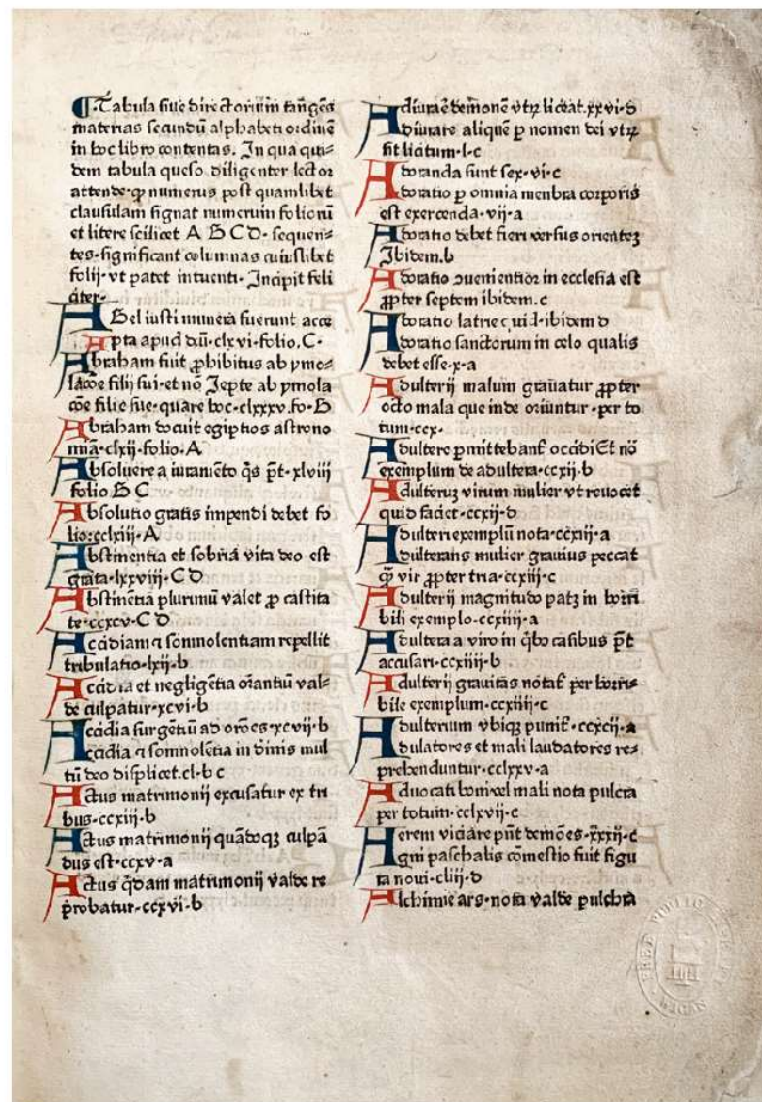 ¶Tabula siue directorium tangēs
materias secundū alphabeti ordinē
in hoc libro contentas. In qua qui-
dem tabula queso diligenter lector
attende·ꝙ numerus post quamlibet
clausulam signat numerum foliorū
et litere scilicet A B C D· sequen-
tes·significant columnas cuiuslibet
folij·vt patet intuenti·Incipit feli
citer·
ABel iusti munera fuerunt acce
pta apud dūū·clxvi·folio.C·
Abraham fuit ꝓhibitus ab ymo-
lacōe filij sui·et nō Jepte ab ymola
cōe filie sue·quare hoc·clxxxv.fo·B
Abraham docuit egiptios astrono
miā·clxij·folio·A
Absoluere a iuramēto q̄s p̄t·xlviij
folio B C
Absolutio gratis impendi debet fo
lio·cclxiij·A
Abstinentia et sobriā vita deo est
grata·lxxviij·C D
Abstinētia plurimū valet ꝓ castita
te·ccxcv·C D
Accidiam ⁊ somnolentiam repellit
tribulatio·lxij·b
Accidia et negligētia orantiū val-
de culpatur·xcvi·b
Accidia surgētiū ad orōes·xcvij·b
Accidia ⁊ somnolētia in diuinis mul
tū deo displicet.cl·b c
Actus matrimonij excusatur ex tri
bus·ccxiij·b
Actus matrimonij quādoqꝫ culpā
dus est·ccxv·a
Actus q̄dam matrimonij valde re
probatur·ccxvi·b
Adiurare demonē vtrū liceat·xxvi·d
Adiurare aliquē ꝑ nomen dei vtrū
sit licitum·l·c
Adoranda sunt sex·vi·c
Adoratio ꝑ omnia menbra corporis
est exercenda·vij·a
Adoratio debet fieri versus orienteꝫ
Ibidem.b
Adoratio ꝯuenientior in ecclesia est
ꝓpter septem ibidem.c
Adoratio latrie quid·ibidem d
Adoratio sanctorum in celo qualis
debet esse·x·a
Adulterij malum grauatur ꝓpter
octo mala que inde oriuntur·per to
tum·ccx·
Adultere ꝑmittebant occidi Et nō
exemplum de adultera·ccxij·b
Adulteruꝫ virum mulier vt reuocet
quid faciet·ccxij·d
Adulteri exemplū nota·ccxiij·a
Adulterans mulier grauius peccat
ꝙ̄ vir ꝓpter tria·ccxiij·c
Adulterij magnitudo patꝫ in horri
bili exemplo·ccxiiij·a
Adultera a viro in q̄bo casibus p̄t
accusari·ccxiiij·b
Adulterij grauitas notat per horri-
bile exemplum·ccxiiij·c
Adulterium vbiqꝫ punit·ccxcij·a
Adulatores et mali laudatores re-
prehenduntur·cclxxv·a
Aduocati boni vel mali nota pulcra
per totum·cclxvij·c
Aerem viciare pn̄t demōes·xxxij·c
Agni paschalis cōmestio fuit figu
ra noui·cliij·d
Alchimie ars·nota valde pulchra
FREE PUBLIC LIBRARY
WIGAN